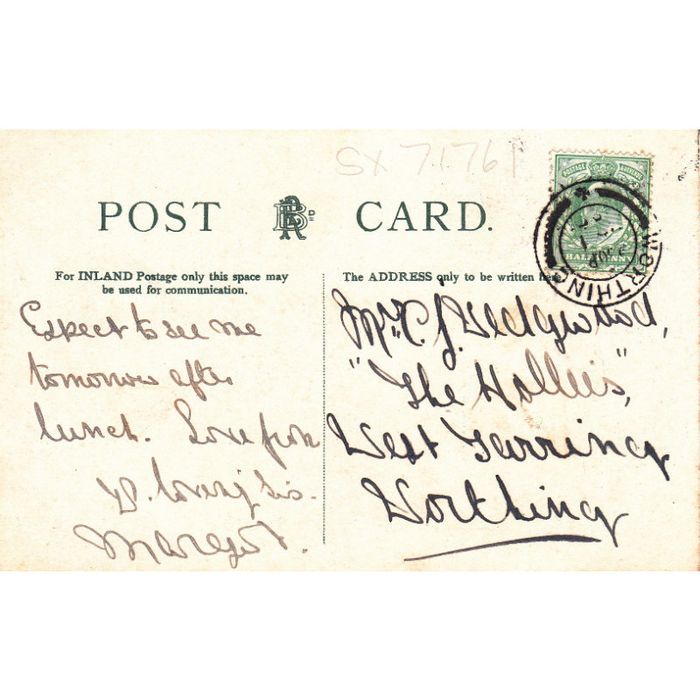 SX 7.1.76
POST CARD.
For INLAND Postage only this space may
be used for communication.
The ADDRESS only to be written here
POSTAGE REVENUE
HALFPENNY
WORTHING
Expect to see me
tomorrow after
lunch. Love from
yr. loving sis.
Margot.
Mrs C. J. Wedgwood,
"The Hollies",
West Tarring
Worthing